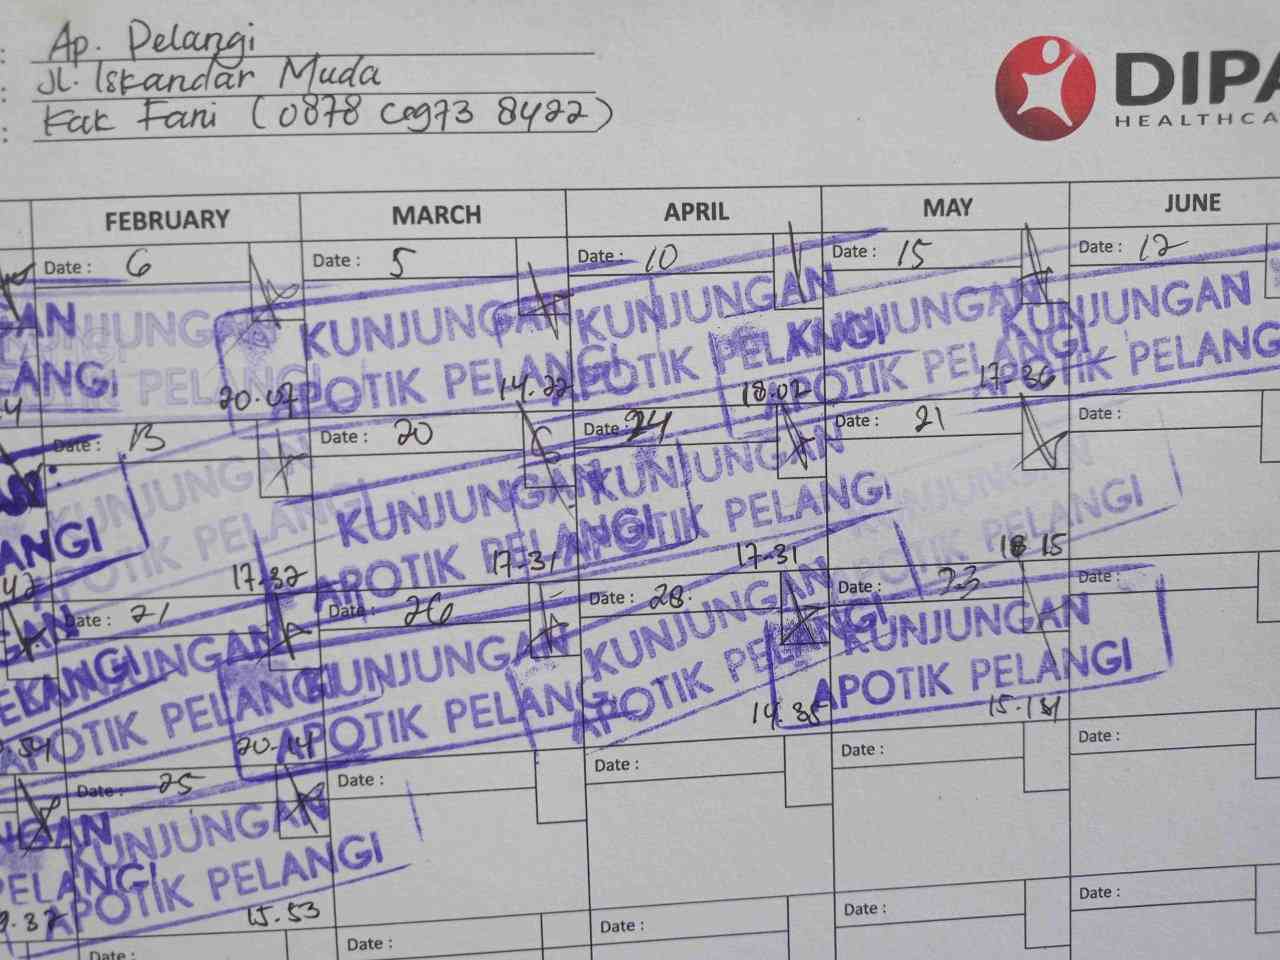 : Ap. Pelangi
: Jl. Iskandar Muda
: Kak Fani ( 0878 8422 )
DIPA
HEALTHCA
FEBRUARY MARCH APRIL MAY JUNE
Date : 6 Date : 5 Date : 10 Date : 15 Date : 12
GAN KUNJUNGAN KUNJUNGAN KUNJUNGAN KUNJUNGAN KUNJUNGAN
ANGI APOTIK PELANGI APOTIK PELANGI APOTIK PELANGI APOTIK PELANG
20.07 14.22 18.02 17-36
Date : 13 Date : 20 Date : 24 Date : 21 Date :
KUNJUNGAN KUNJUNGAN KUNJUNGAN KUNJUNGAN
ANGI APOTIK PELANGI APOTIK PELANGI APOTIK PELANGI APOTIK PELANGI
17-32 17-31 17-31 18 15
Date : 21 Date : 26 Date : 28. Date : 23 Date :
GAN KUNJUNGAN KUNJUNGAN KUNJUNGAN KUNJUNGAN
APOTIK PELANGI APOTIK PELANGI APOTIK PELANGI APOTIK PELANGI
20-14 14.35
Date : 25 Date : Date : Date : Date :
NGAN KUNJUNGAN
PELANGI APOTIK PELANGI
15.53
Date : Date : Date : Date : Date :